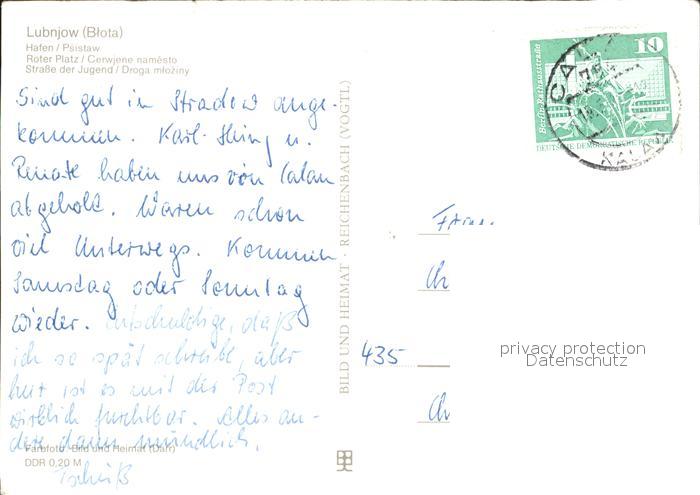 Lubnjow (Błota)
Hafen / Pśistaw
Roter Platz / Cerwjene naměsto
Straße der Jugend / Droga młoźiny
Sind gut in Stradow ange-
kommen. Karl-Heinz u.
Renate haben uns von Calau
abgeholt. Waren schon
viel Unterwegs. Kommen
Samstag oder Sonntag
wieder. Entschuldige, daß
ich so spät schreibe, aber
hier ist es mit der Post
wirklich furchtbar. Alles an-
dere dann mündlich.
Tschüß
Farbfoto: Bild und Heimat (Darr)
DDR 0,20 M
BILD UND HEIMAT · REICHENBACH (VOGTL)
10
Berlin, Rathausstraße
DEUTSCHE DEMOKRATISCHE
KALAWA
Ch
435
Ch
privacy protection
Datenschutz